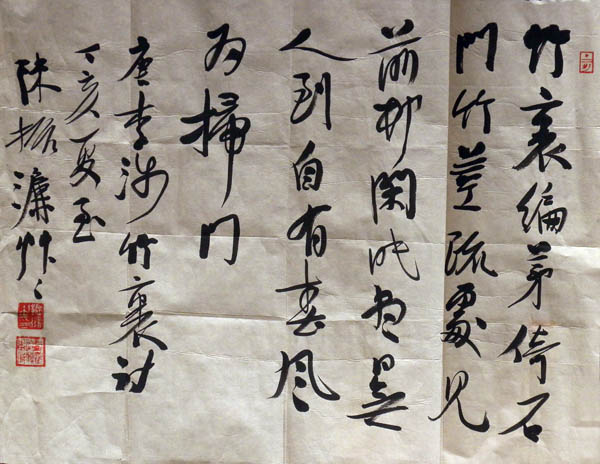 竹裏編茅倚石
門竹莖疏處見
前村閑眠盡日無
人到自有春风
为掃门
唐李涉竹裏詩
丁亥夏至
陳振濂艸〻